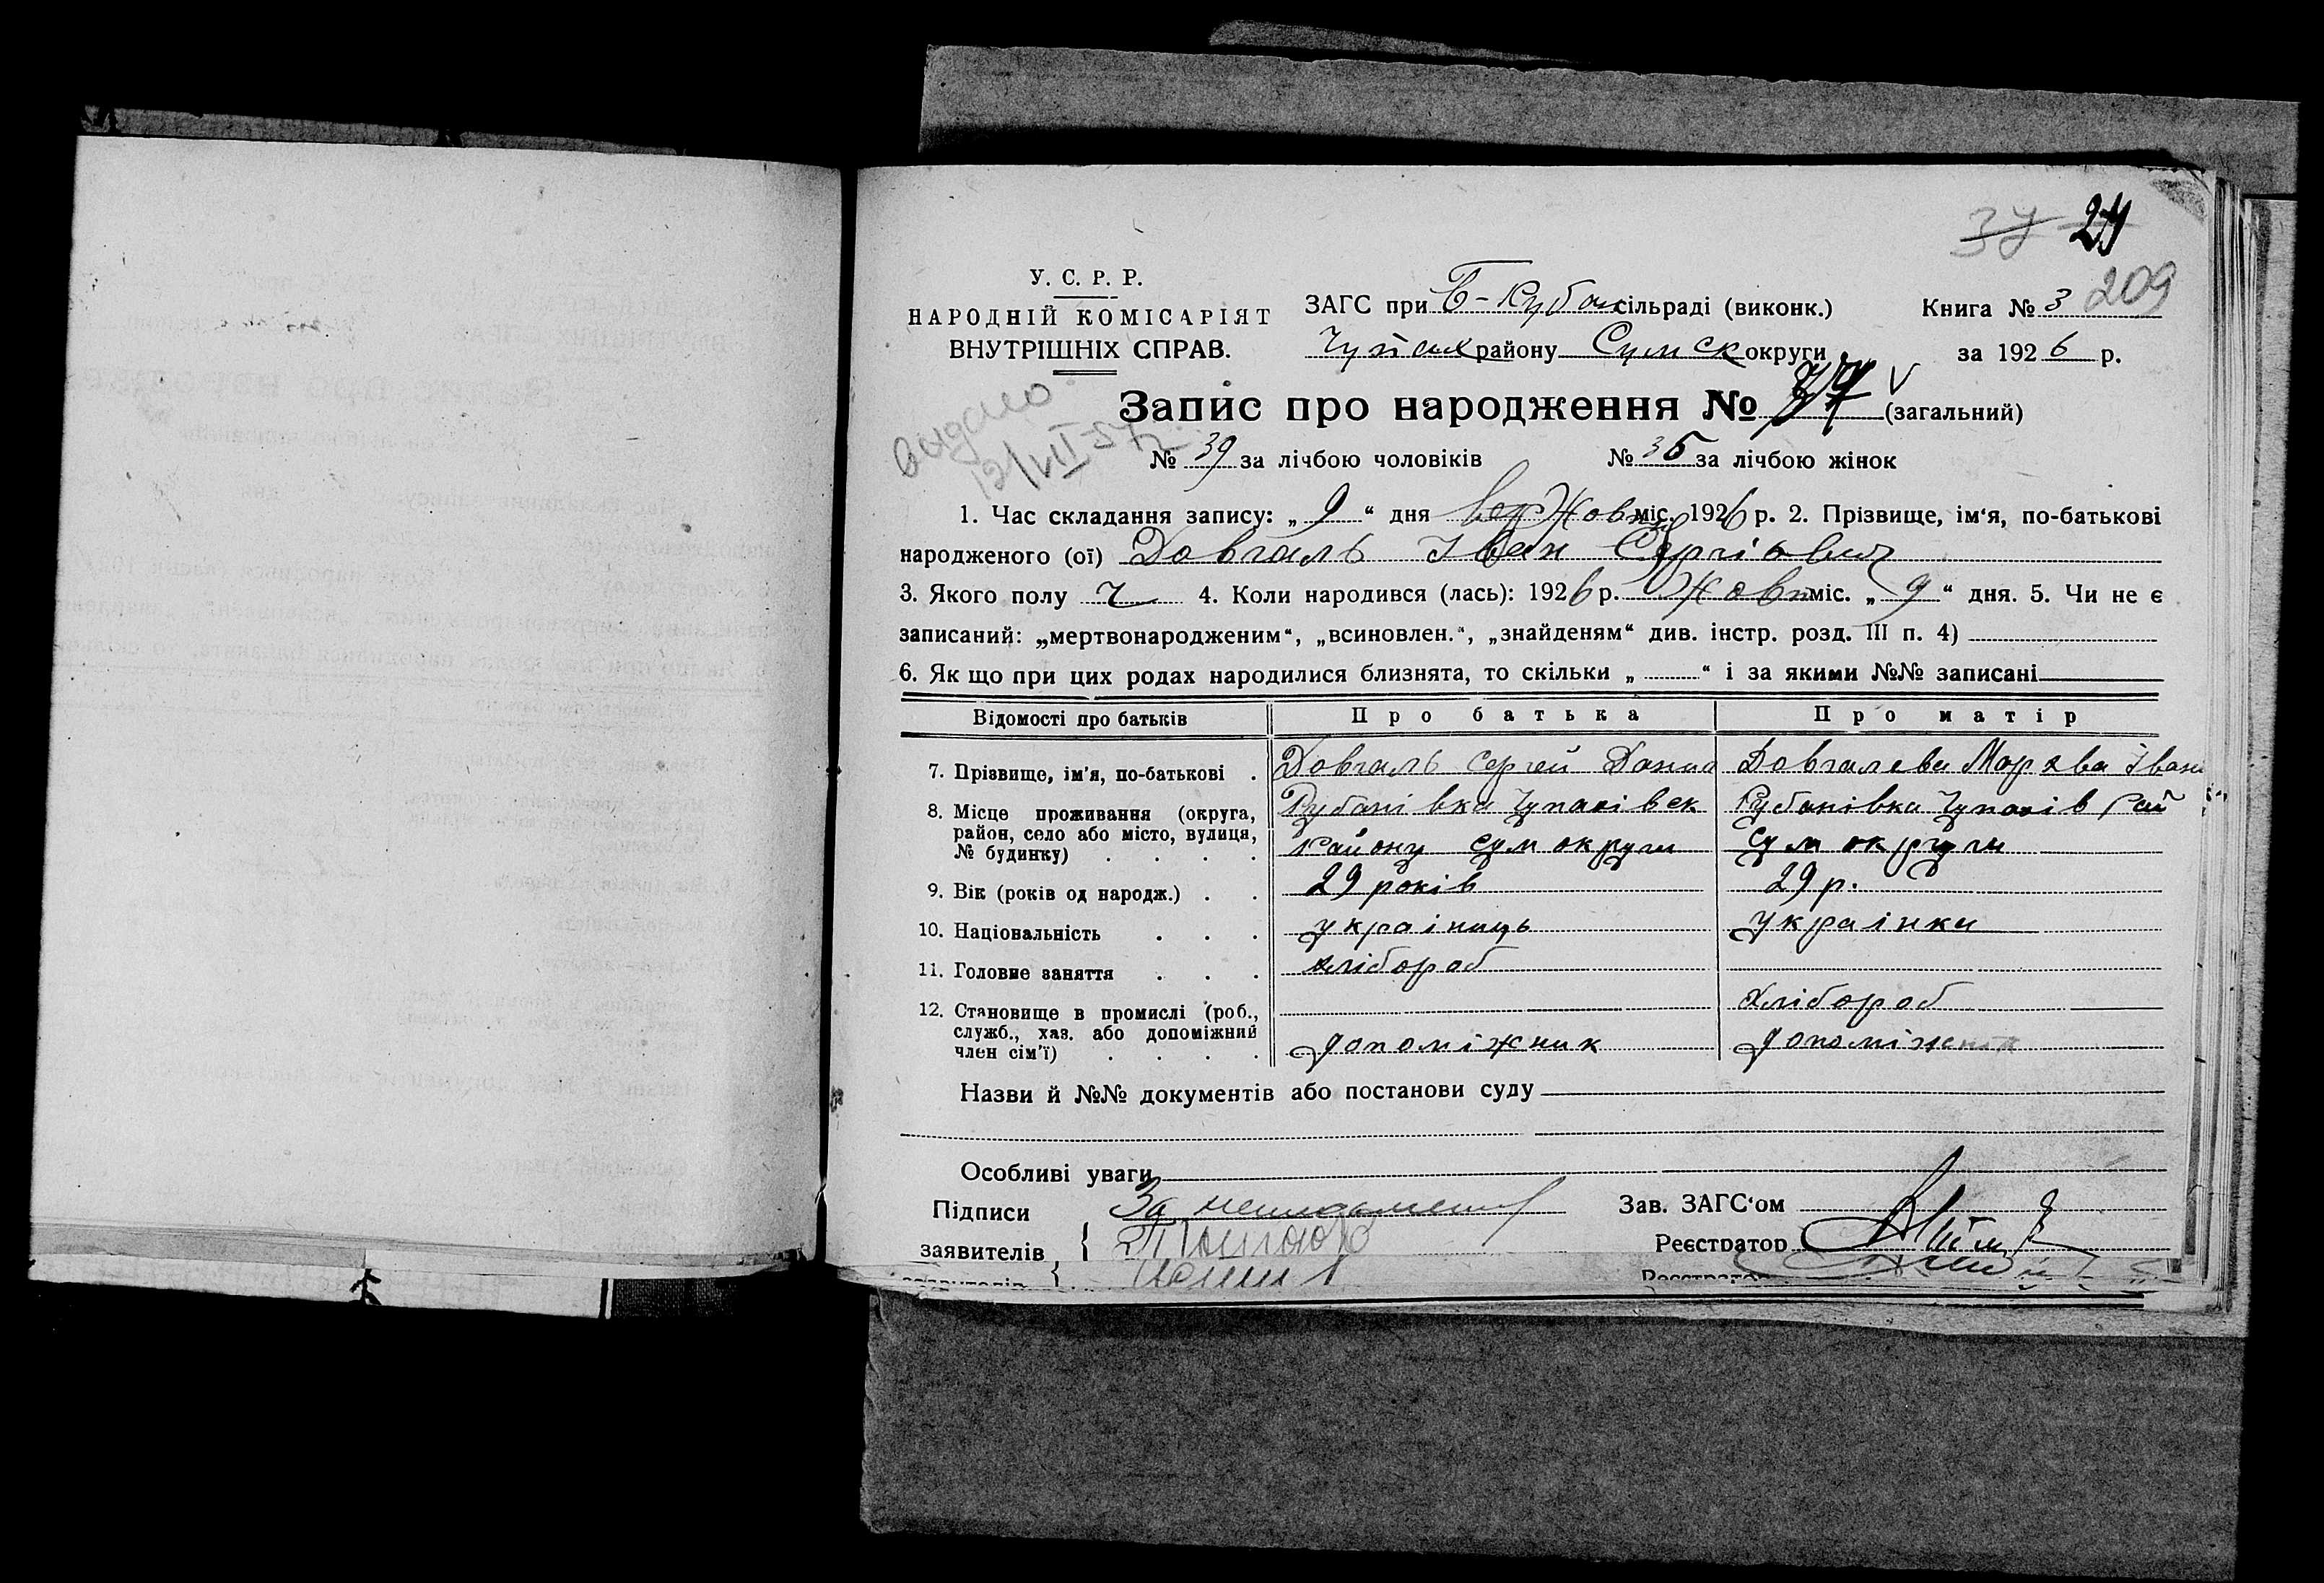 37 24
209
У. С. Р. Р.
НАРОДНІЙ КОМІСАРІЯТ
ВНУТРІШНІХ СПРАВ.
ЗАГС при Б-Рубан сільраді (виконк.)
Книга № 3
Чупах району Сумск округи
за 1926 р.
Запис про народження № (загальний)
видано
12/VII-57
№ 39 за лічбою чоловіків № 35 за лічбою жінок
1. Час складання запису: „ 9 “ дня вер Жовт міс. 1926 р. 2. Прізвище, ім‘я, по-батькові
народженого (ої) Довгаль Іван Сергієвич
3. Якого полу ч 4. Коли народився (лась): 1926 р. Жовт міс. „ 9 “ дня. 5. Чи не є
записаний: „мертвонародженим“, „всиновлен.“, „знайденям“ див. інстр. розд. III п. 4)
6. Як що при цих родах народилися близнята, то скільки „ “ і за якими №№ записані
Відомості про батьків Про батька Про матір
7. Прізвище, ім'я, по-батькові . Довгаль Сергей Данил Довгалева Мархва Іван
8. Місце проживання (округа, район, село або місто, вулиця, № будинку) . . . . Рубанівка Чупахівск Рубанівка Чупахів Рай
Району Сум округи Сум округи
9. Вік (років од народж.) . . 29 років 29 р.
10. Національність . . . україниць українка
11. Головне заняття . . . хлібороб
12. Становище в промислі (роб., служб., хаз. або допоміжний член сім'ї) . . . . хлібороб
допоміжник допоміжник
Назви й №№ документів або постанови суду
Особливі уваги
Підписи За
заявителів {
Зав. ЗАГС‘ом
Реєстратор
заявителів {
Реєстратор